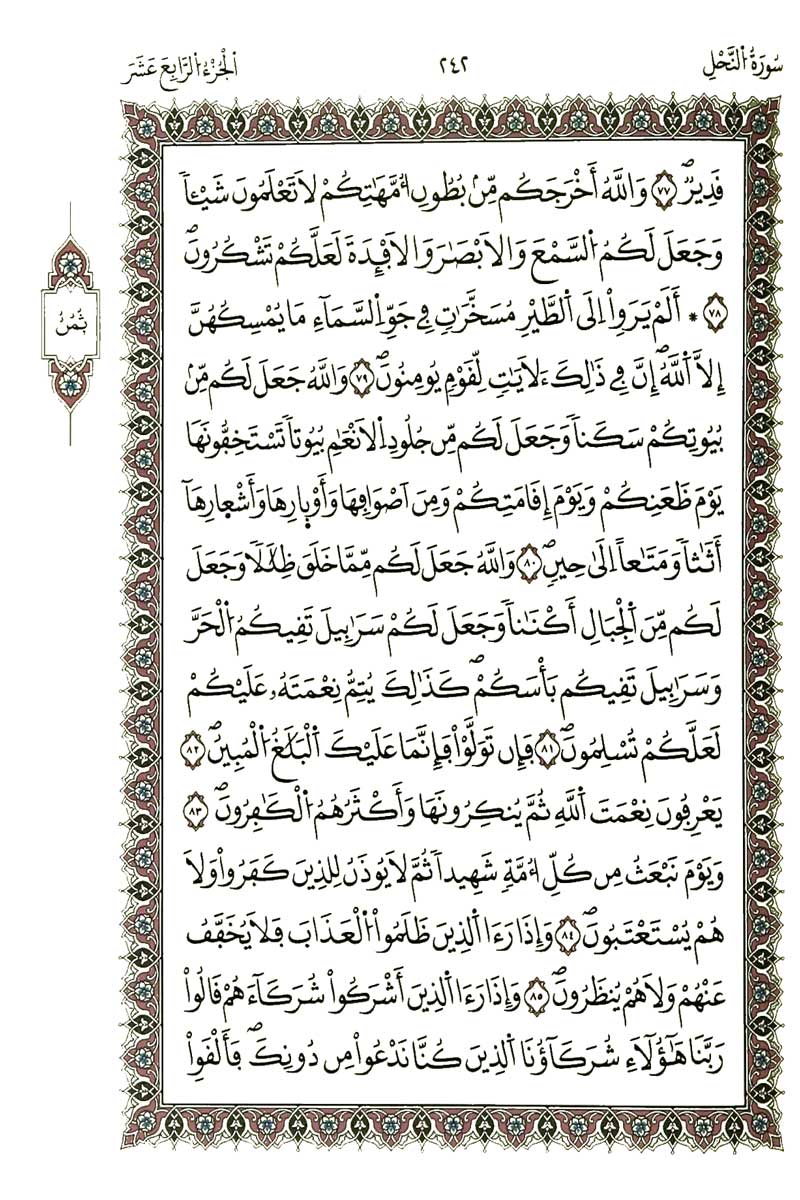 سُورَةُ النَّحْلِ
٢٤٢
اَلْجُزْءُ الرَّابِعَ عَشَرَ
ثُمُنُ
قَدِيرٌۖ ٧٧ وَاللَّهُ أَخْرَجَكُم مِّنۢ بُطُونِ اُمَّهَٰتِكُمْ لَا تَعْلَمُونَ شَيْـٔاٗ
وَجَعَلَ لَكُمُ السَّمْعَ وَالَابْصَٰرَ وَالَافْـِٕدَةَ لَعَلَّكُمْ تَشْكُرُونَۖ
٧٨ * أَلَمْ يَرَوِاْ اِلَى اَلطَّيْرِ مُسَخَّرَٰتٖ فِي جَوِّ اِلسَّمَآءِ مَا يُمْسِكُهُنَّ
إِلَّا اَللَّهُۖ إِنَّ فِي ذَٰلِكَ ءَلَايَٰتٖ لِّقَوْمٖ يُومِنُونَۖ ٧٩ وَاللَّهُ جَعَلَ لَكُم مِّنۢ
بُيُوتِكُمْ سَكَناٗ وَجَعَلَ لَكُم مِّن جُلُودِ اِلَانْعَٰمِ بُيُوتاٗ تَسْتَخِفُّونَهَا
يَوْمَ ظَعَنِكُمْ وَيَوْمَ إِقَامَتِكُمْ وَمِنَ اَصْوَافِهَا وَأَوْبِارِهَا وَأَشْعِارِهَآ
أَثَٰثاٗ وَمَتَٰعاً اِلَىٰ حِينٖۖ ٨٠ وَاللَّهُ جَعَلَ لَكُم مِّمَّا خَلَقَ ظِلَٰلاٗ وَجَعَلَ
لَكُم مِّنَ اَلْجِبَالِ أَكْنَٰناٗ وَجَعَلَ لَكُمْ سَرَٰبِيلَ تَقِيكُمُ الْحَرَّ
وَسَرَٰبِيلَ تَقِيكُم بَأْسَكُمْۖ كَذَٰلِكَ يُتِمُّ نِعْمَتَهُۥ عَلَيْكُمْ
لَعَلَّكُمْ تُسْلِمُونَۖ ٨١ فَإِن تَوَلَّوْاْ فَإِنَّمَا عَلَيْكَ اَلْبَلَٰغُ الْمُبِينُۖ ٨٢
يَعْرِفُونَ نِعْمَتَ اَللَّهِ ثُمَّ يُنكِرُونَهَا وَأَكْثَرُهُمُ الْكَٰفِرُونَۖ ٨٣
وَيَوْمَ نَبْعَثُ مِن كُلِّ أُمَّةٖ شَهِيداٗ ثُمَّ لَا يُوذَنُ لِلذِينَ كَفَرُواْ وَلَا
هُمْ يُسْتَعْتَبُونَۖ ٨٤ وَإِذَا رَءَا اَلذِينَ ظَلَمُواْ الْعَذَابَ فَلَا يُخَفَّفُ
عَنْهُمْ وَلَا هُمْ يُنظَرُونَۖ ٨٥ وَإِذَا رَءَا اَلذِينَ أَشْرَكُواْ شُرَكَآءَهُمْ قَالُواْ
رَبَّنَا هَٰٓؤُلَآءِ شُرَكَآؤُنَا اَلذِينَ كُنَّا نَدْعُواْ مِن دُونِكَۖ فَأَلْقَوِاْ